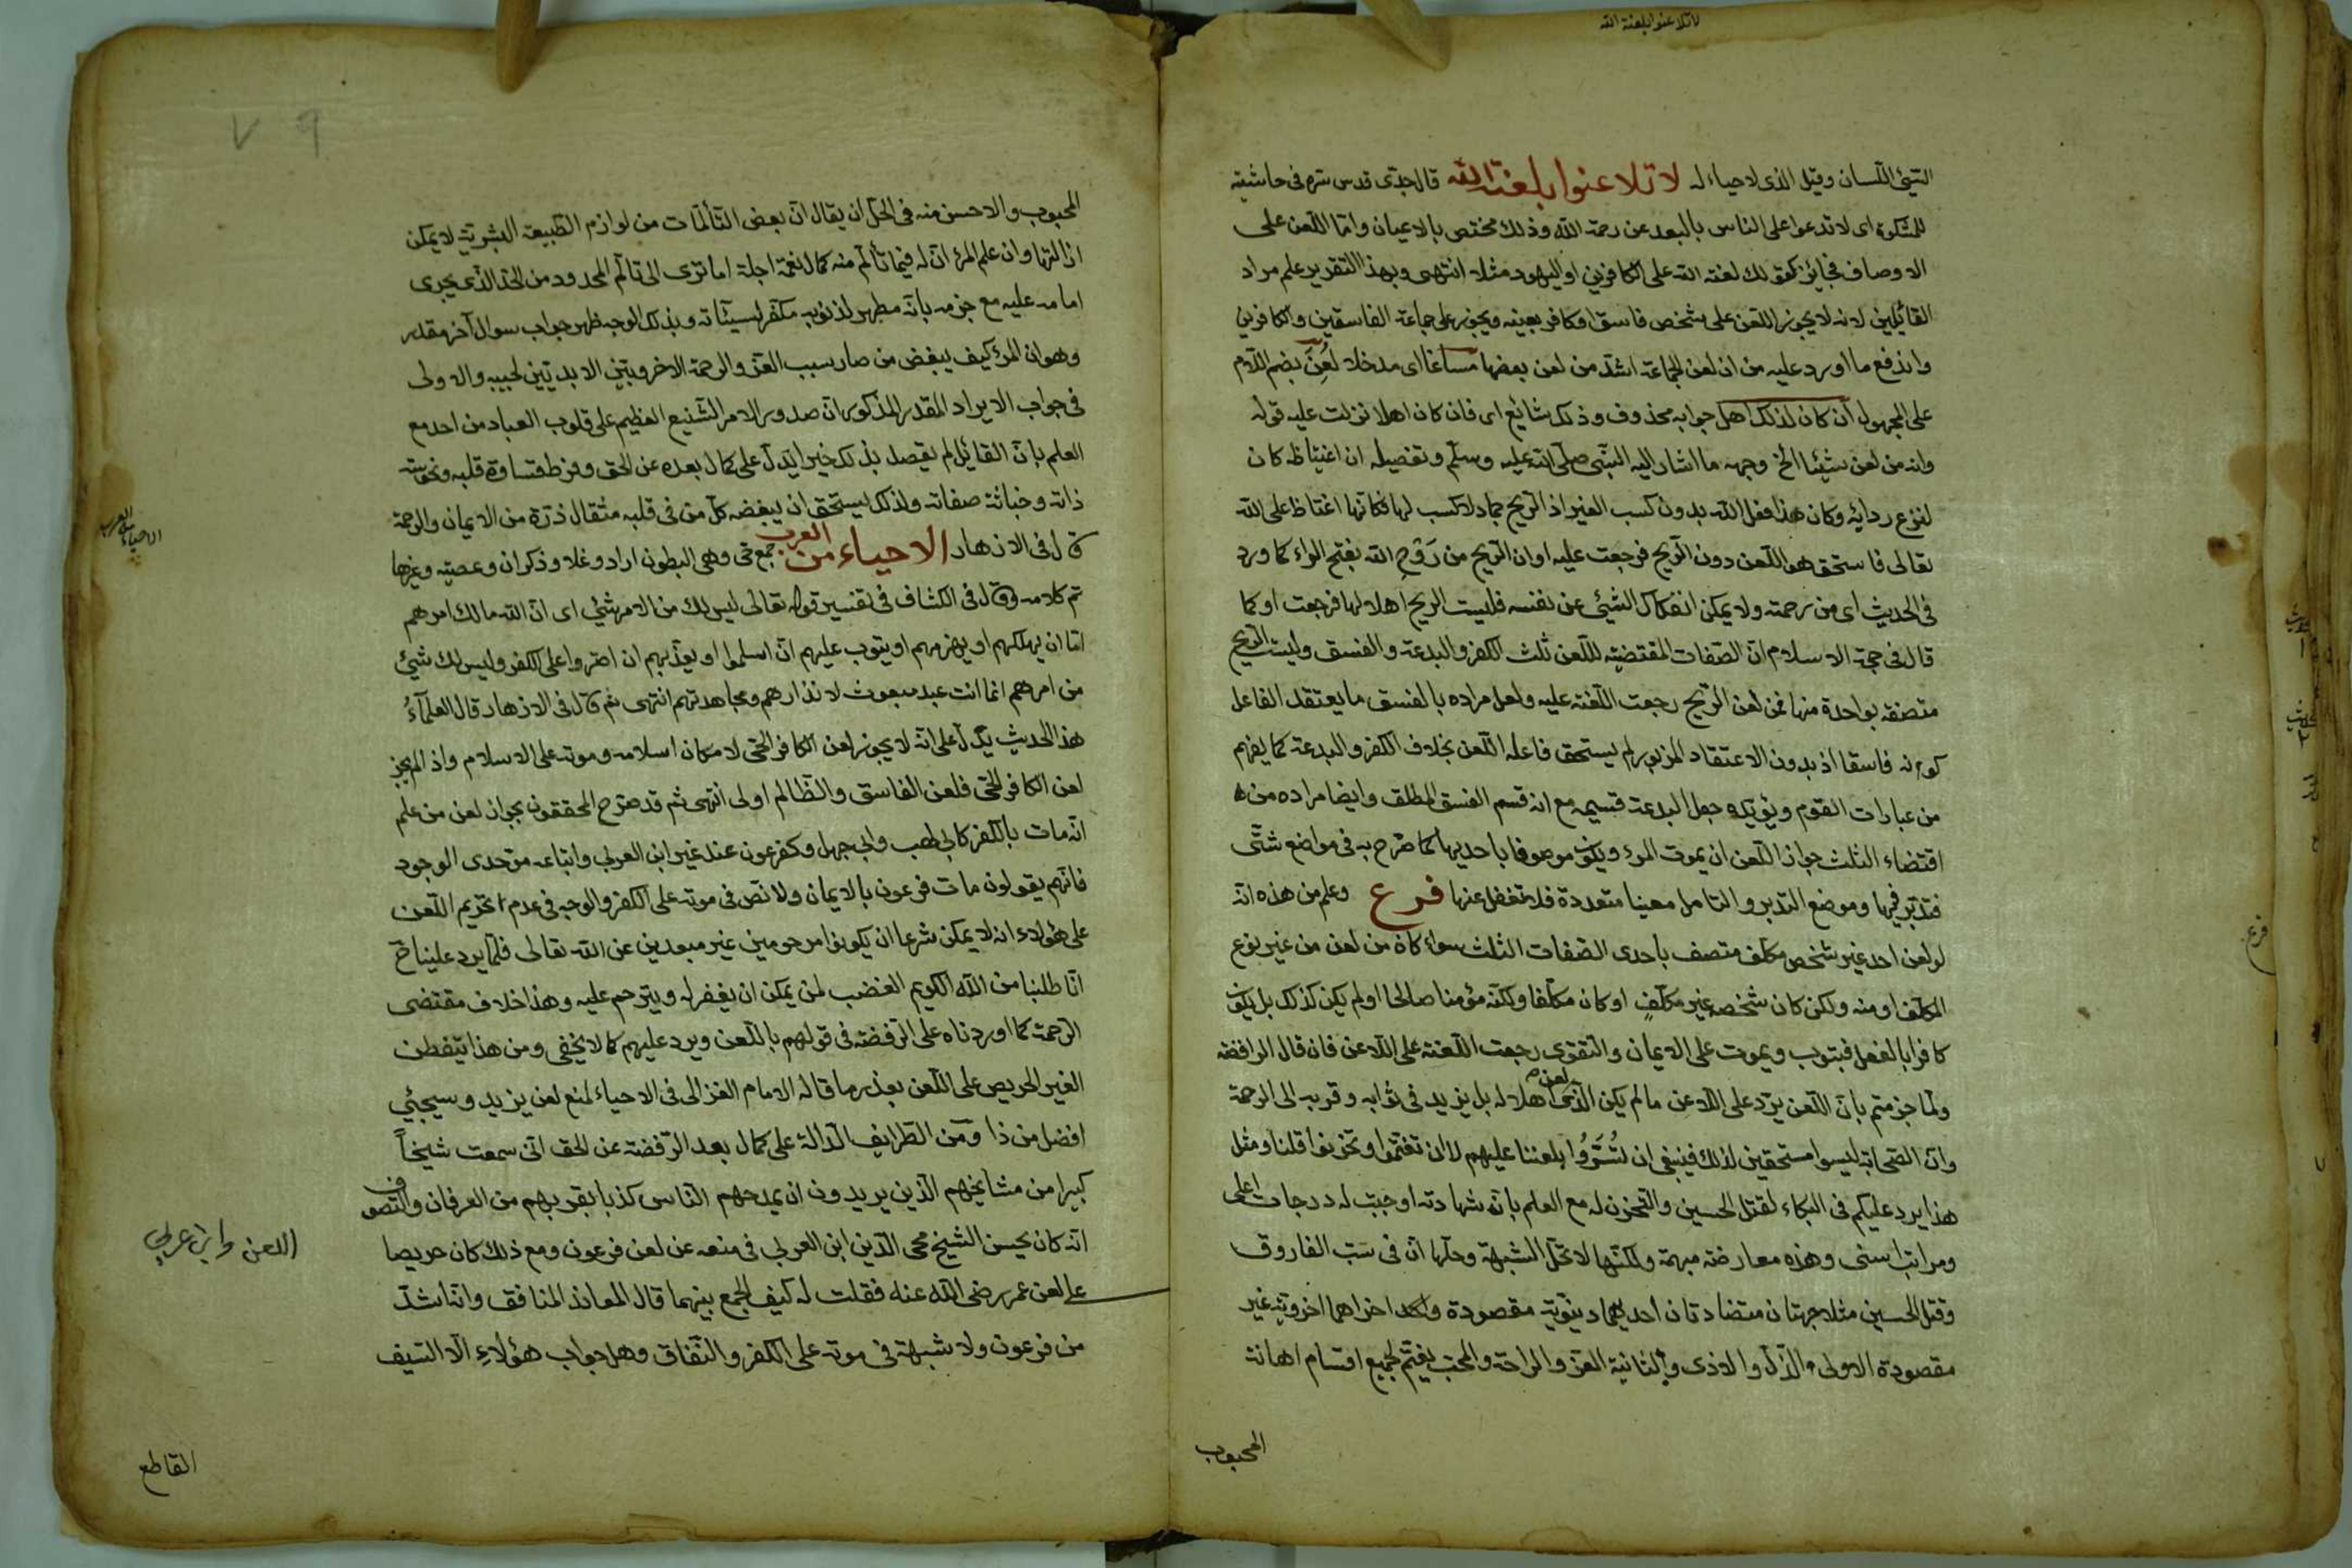 لا تلاعنوا بلعنة الله
السيئ اللسان وقيل الذى لا حياء له لا تلاعنوا بلعنة الله قال جدى قدس سره فى حاشيته
للمشكوة اى لا تدعوا على الناس بالبعد عن رحمة الله وذلك مختص بالاعيان واما اللعن على
الاوصاف فجايز كقولك لعنة الله على الكافرين او اليهود مثلا انتهى وبهذا التقرير علم مراد
القائلين لانه لا يجوز اللعن على شخص فاسق او كافر بعينه ويجوز على جماعة الفاسقين والكافرين
واندفع ما اورد عليه من ان لعن الجماعة اشد من لعن بعضها مساغا اى مدخلا لعن بضم اللام
على المجهول ان كان لذلك اهل جوابه محذوف وذلك شائع اى فان كان اهلا نزلت عليه قوله
وانه من لعن شيئا الخ وجهه ما اشار اليه النبى صلى الله عليه وسلم وتفصيله ان اغتياظه كان
لنزع ردائه وكان هذا فعل الله بدون كسب الغير اذ الريح جماد لا كسب لها فكانها اغتاظ على الله
تعالى فاستحق هو اللعن دون الريح فرجعت عليه او ان الريح من روح الله بفتح الراء كما ورد
فى الحديث اى من رحمته ولا يمكن انفكاك الشيئ عن نفسه فليست الريح اهلا لها فرجعت او كما
قال فى حجة الاسلام ان الصفات المقتضية للعن ثلث الكفر والبدعة والفسق وليست الريح
متصفة بواحدة منها فمن لعن الريح رجعت اللعنة عليه ولعل مراده بالفسق ما يعتقد الفاعل
كونه فاسقا اذ بدون الاعتقاد المزبور لم يستحق فاعله اللعن بخلاف الكفر والبدعة كما يفهم
من عبارات القوم ويؤيده جعل البدعة قسيمه مع انه قسم الفسق المطلق وايضا مراده من
اقتضاء الثلث جواز اللعن ان يموت المرء ويكون موصوفا باحديها كما صرح به فى مواضع شتى
فتدبر فيها وموضع التدبر والتامل معينا متعددة فلا تغفل عنها فرع وعلم من هذه انه
لو لعن احد غير شخص مكلف متصف باحدى الصفات الثلث سواء كان من لعن من غير نوع
المكلف او منه ولكن كان شخصه غير مكلف او كان مكلفا ولكنه مؤمنا صالحا او لم يكن كذلك بل يكون
كافرا بالفعل فيتوب ويموت على الايمان والتقوى رجعت اللعنة على اللاعن فان قال الرافضة
ولما جزمتم بان اللعن يرد على اللاعن ما لم يكن الذى لعن اهلا له بل يزيد فى ثوابه وقربه الى الرحمة
وان الصحابة ليسوا مستحقين لذلك فينبغى ان تسروا بلعننا عليهم لا ان تغتموا وتحزنوا قلنا ومثل
هذا يرد عليكم فى البكاء لقتل الحسين والتحزن له مع العلم بان شهادته اوجبت له درجات اعلى
ومراتب اسنى وهذه معارضة مبهمة ولكنها لا تحل الشبهة وحلها ان فى سب الفاروق
وقتل الحسين مثلا جهتان متضادتان احديهما دينوية مقصودة واخراهما اخروية غير
مقصودة الاولى الذل والاذى والثانية العز والراحة والمحب يغتم لجميع اقسام اهانة
المحبوب
فرع
المحبوب والاحسن منه فى الحل ان يقال ان بعض التألمات من لوازم الطبيعة البشرية لا يمكن
ازالتها وان علم المرء ان له فيما تألم منه كمال نعمة اجلة اما ترى الى تألم المحدود من الحد الذى يجرى
امامه عليه مع جزمه بانه مطهر لذنوبه مكفر لسيئاته وبذلك الوجه ظهر جواب سوال آخر مقدر
وهو ان المرء كيف يبغض من صار سبب العز والرحمة الاخرويتين الابديتين لحبيبه والاولى
فى جواب الايراد المقدر المذكور ان صدور الامر الشنيع العظيم على قلوب العباد من احد مع
العلم بان القائل لم يقصد بذلك خيرا يدل على كمال بعده عن الحق وفرط قساوة قلبه ونحوسة
ذاته وخباثة صفاته ولذلك يستحق ان يبغضه كل من فى قلبه مثقال ذرة من الايمان والرحمة
قال فى الازهار الاحياء من العرب جمع حى وهى البطون اراد وغلا وذكران وعصية وغيرها
تم كلامه وقال فى الكشاف فى تفسير قوله تعالى ليس لك من الامر شيئ اى ان الله مالك امرهم
اما ان يهلكهم او يهزمهم او يتوب عليهم ان اسلموا او يعذبهم ان اصروا على الكفر وليس لك شيئ
من امرهم انما انت عبد مبعوث لانذارهم ومجاهدتهم انتهى ثم قال فى الازهار قال العلماء
هذا الحديث يدل على انه لا يجوز لعن الكافر الحى لامكان اسلامه وموته على الاسلام واذا لم يجز
لعن الكافر الحى فلعن الفاسق والظالم اولى انتهى ثم قد صرح المحققون بجواز لعن من علم
انه مات بالكفر كابى لهب وابى جهل وكفرعون عند غير ابن العربى واتباعه موحدى الوجود
فانهم يقولون مات فرعون بالايمان ولا نص فى موته على الكفر والوجه فى عدم تحريم اللعن
على هؤلاء انه لا يمكن شرعا ان يكونوا مرحومين غير مبعدين عن الله تعالى فلما يرد علينا ح
انا طلبنا من الله الكريم الغضب لمن يمكن ان يغفر له ويترحم عليه وهذا خلاف مقتضى
الرحمة كما اوردناه على الرفضة فى قولهم باللعن ويرد عليهم كما لا يخفى ومن هذا يتفطن
الغير الحريص على اللعن بعذر ما قاله الامام الغزالى فى الاحياء لمنع لعن يزيد وسيجئي
افضل من ذا ومن الطرايف الدالة على كمال بعد الرفضة عن الحق انى سمعت شيخاً
كبيرا من مشايخهم الذين يريدون ان يمدحهم الناس كذبا بقربهم من العرفان والتصوف
انه كان يحسن الشيخ محى الدين ابن العربى فى منعه عن لعن فرعون ومع ذلك كان حريصا
على لعن عمر رضى الله عنه فقلت له كيف الجمع بينهما قال المعاند المنافق وانا اشد
من فرعون ولا شبهة فى موته على الكفر والنفاق وهل جواب هؤلاء الا السيف
القاطع
الاحياء من العرب
اللعن وابن عربي
٧٩